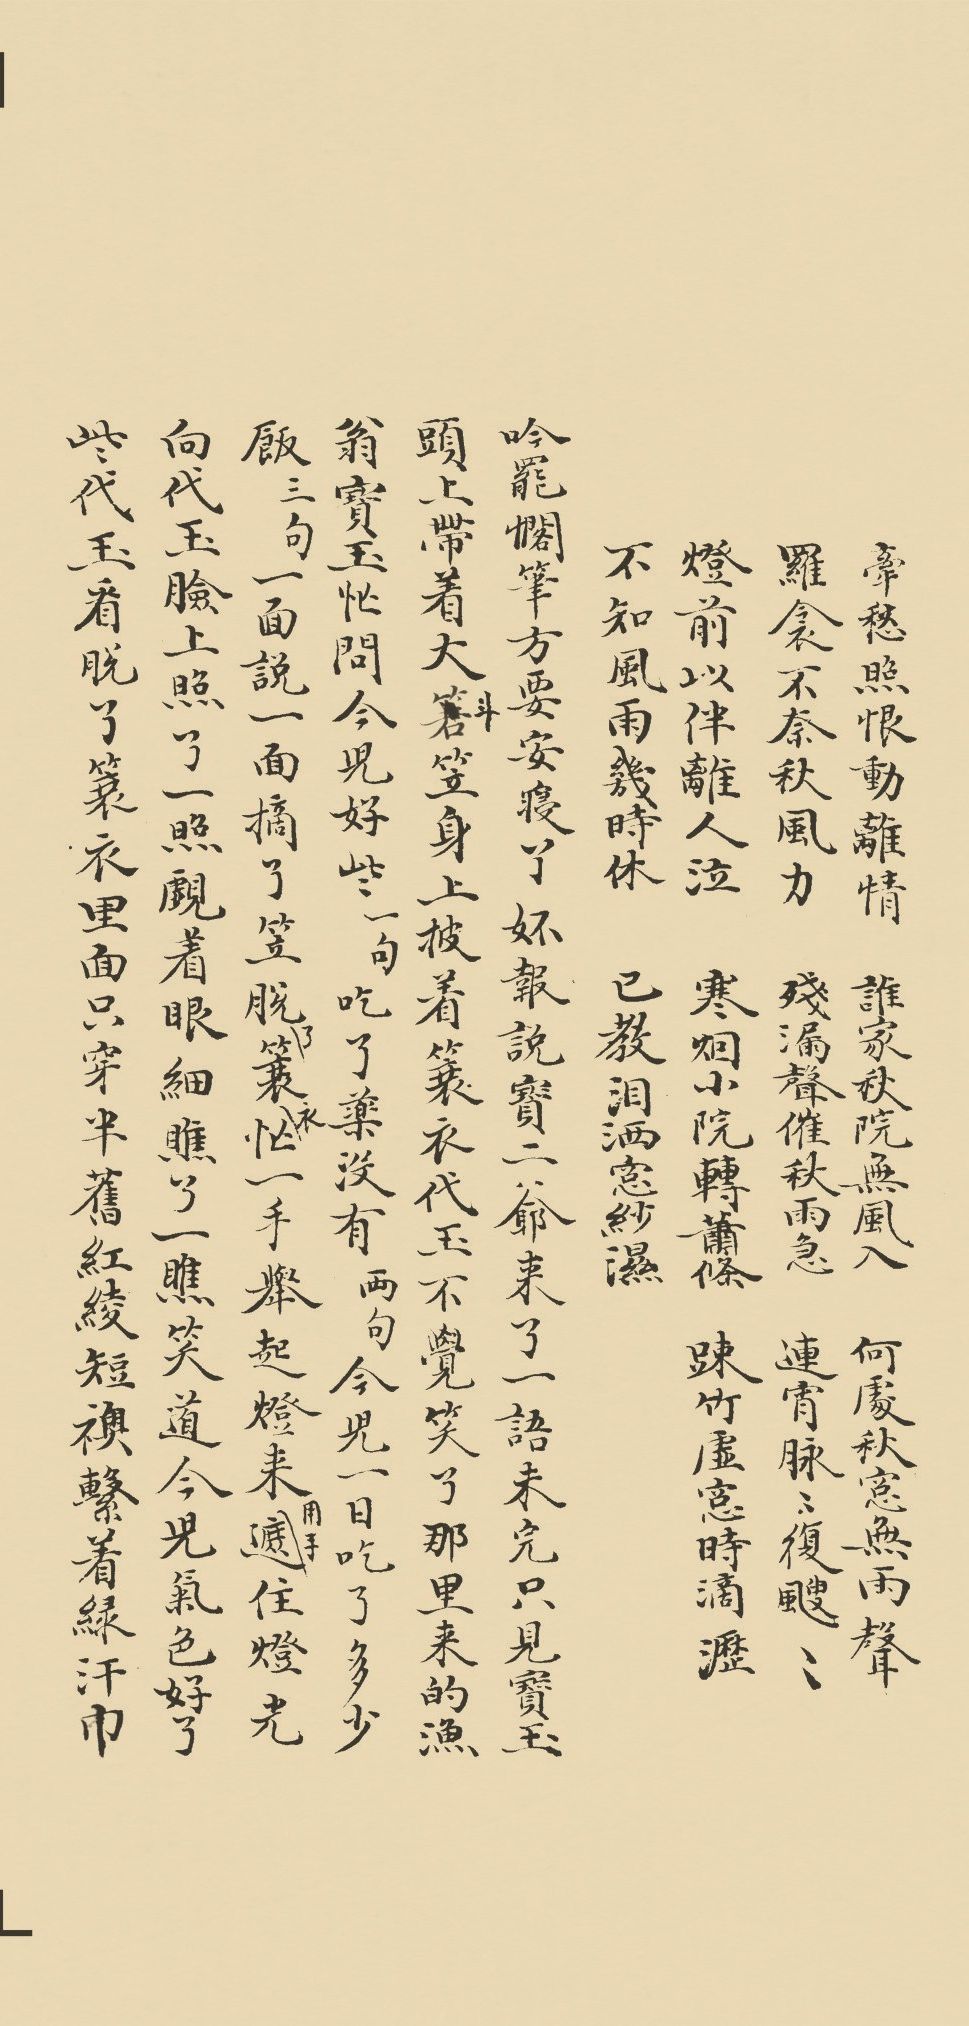 牽愁照恨動離情　誰家秋院無風入　何處秋窓無雨聲
羅衾不奈秋風力　殘漏聲催秋雨急　連宵脉〻復颼〻
燈前以伴離人泣　寒烟小院轉蕭條　踈竹虛窓時滴瀝
不知風雨幾時休　已教淚洒窓紗濕
吟罷擱筆方要安寢丫嬛報說寳二爺来了一語未完只見寳玉
頭上帶着大箬斗笠身上披着簑衣代玉不覺笑了那里来的漁
翁寳玉忙問今兒好些一句吃了藥没有两句今兒一日吃了多少
飯三句一面說一面摘了笠脱了簑衣忙一手舉起燈来用手遮住燈光
向代玉臉上照了一照覷着眼細瞧了一瞧笑道今兒氣色好了
些代玉看脱了簑衣里面只穿半舊紅綾短襖繫着緑汗巾